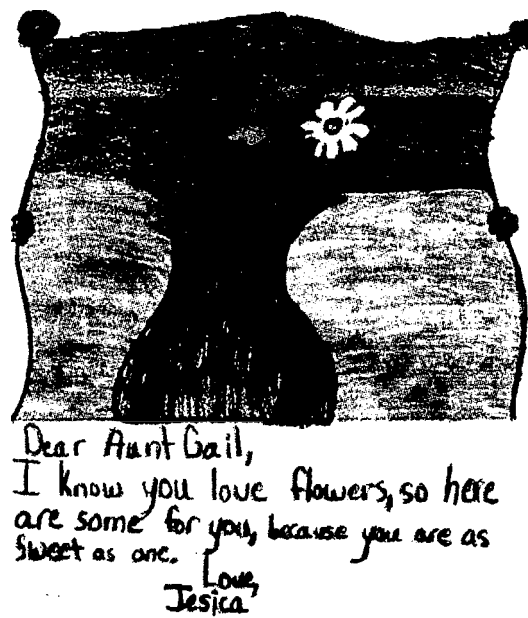 Dear Aunt Gail,
I know you love flowers, so here
are some for you, because you are as
sweet as one.
Love,
Jesica